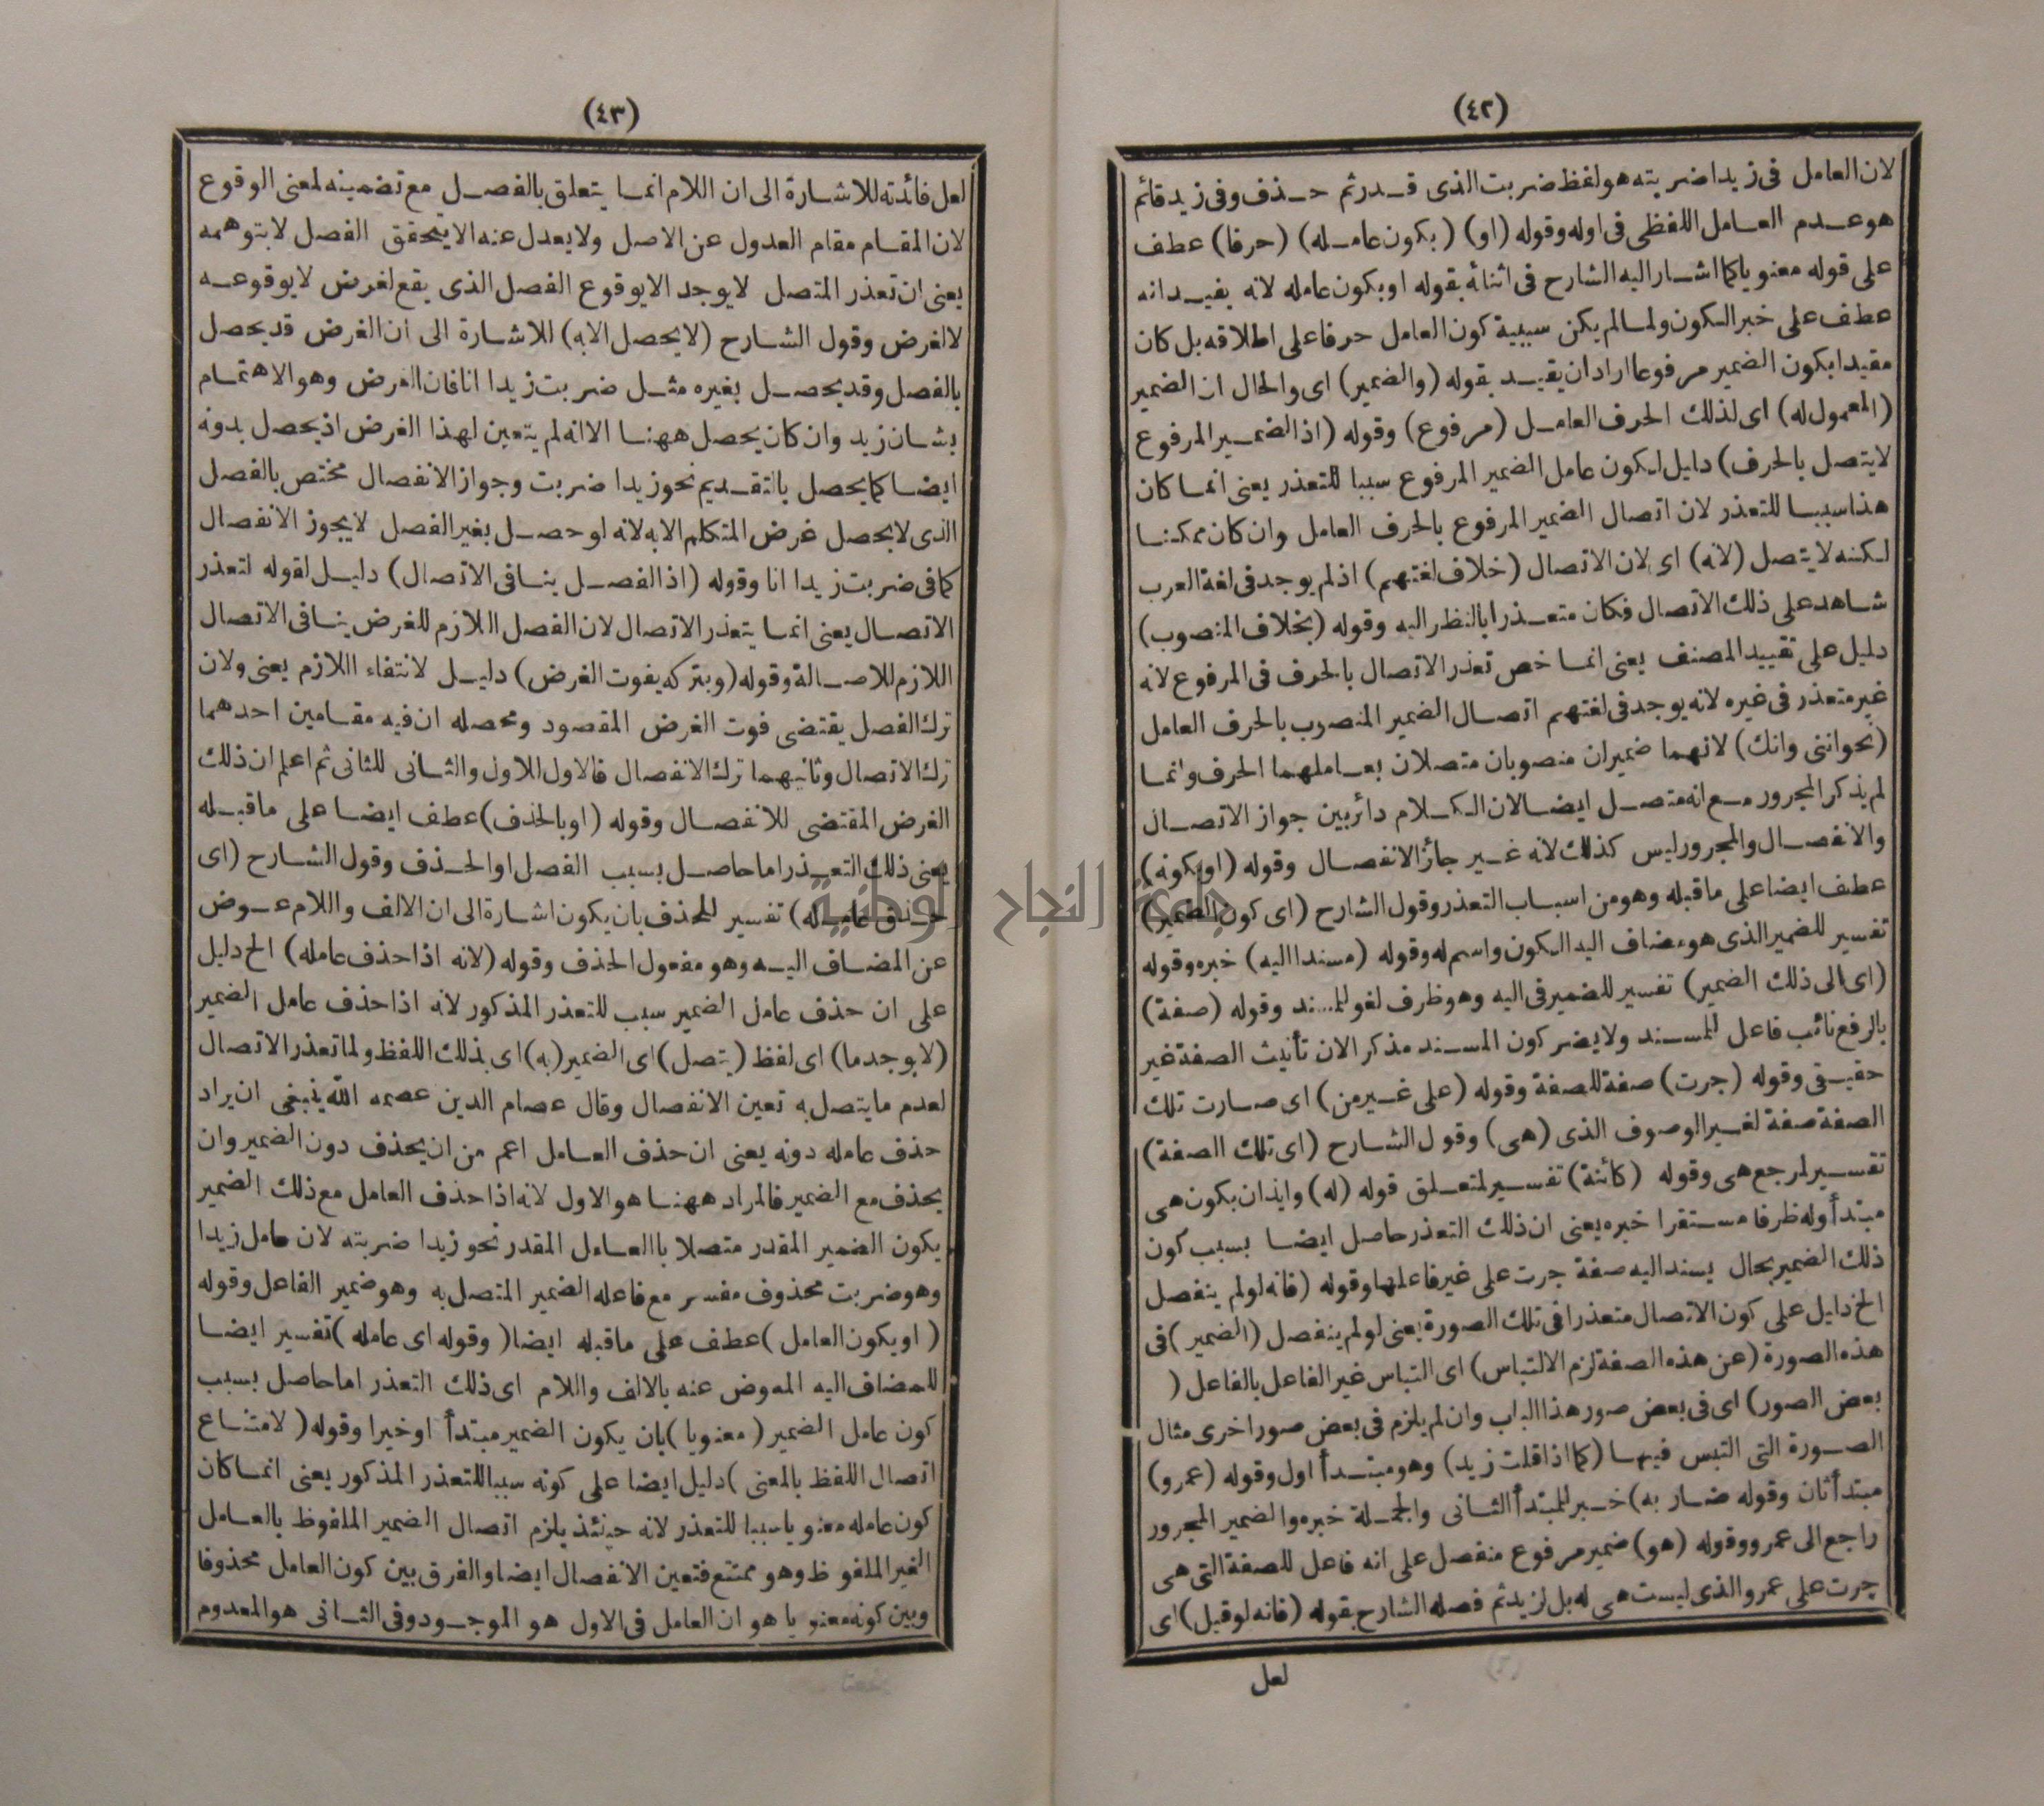 (٤٢)
لان العامل فى زيدا ضربته هو لفظ ضربت الذى قدر ثم حذف وفى زيد قائم
هو عدم العامل اللفظى فى اوله وقوله (او) (يكون عامله) (حرفا) عطف
على قوله معنويا كما اشار اليه الشارح فى اثنائه بقوله او يكون عامله لانه يفيد انه
عطف على خبر الكون ولما لم يكن سببية كون العامل حرفا على اطلاقه بل كان
مقيدا بكون الضمير مرفوعا اراد ان يقيد بقوله (والضمير) اى والحال ان الضمير
(المعمول له) اى لذلك الحرف العامل (مرفوع) وقوله (اذ الضمير المرفوع
لا يتصل بالحرف) دليل لكون عامل الضمير المرفوع سببا للتعذر يعنى انما كان
هذا سببا للتعذر لان اتصال الضمير المرفوع بالحرف العامل وان كان ممكنا
لكنه لا يتصل (لانه) اى لان الاتصال (خلاف لغتهم) اذ لم يوجد فى لغة العرب
شاهد على ذلك الاتصال فكان متعذرا بالنظر اليه وقوله (بخلاف المنصوب)
دليل على تقييد المصنف يعنى انما خص تعذر الاتصال بالحرف فى المرفوع لانه
غير متعذر فى غيره لانه يوجد فى لغتهم اتصال الضمير المنصوب بالحرف العامل
(نحو اننى وانك) لانهما ضميران منصوبان متصلان بعاملهما الحرف وانما
لم يذكر المجرور مع انه متصل ايضا لان الكلام دائر بين جواز الاتصال
والانفصال والمجرور ليس كذلك لانه غير جائز الانفصال وقوله (او بكونه)
عطف ايضا على ما قبله وهو من اسباب التعذر وقول الشارح (اى كون الضمير)
تفسير للضمير الذى هو مضاف اليه الكون واسم له وقوله (مسندا اليه) خبره وقوله
(اى الى ذلك الضمير) تفسير للضمير فى اليه وهو ظرف لغو للمسند وقوله (صفة)
بالرفع نائب فاعل للمسند ولا يضر كون المسند مذكرا لان تأنيث الصفة غير
حقيقى وقوله (جرت) صفة للصفة وقوله (على غير من) اى صارت تلك
الصفة صفة لغير الموصوف الذى (هى) وقول الشارح (اى تلك الصفة)
تفسير لمرجع هى وقوله (كائنة) تفسير لمتعلق قوله (له) وايذان بكون هى
مبتدأ وله ظرفا مستقرا خبره يعنى ان ذلك التعذر حاصل ايضا بسبب كون
ذلك الضمير بحال يسند اليه صفة جرت على غير فاعلها وقوله (فانه لو لم ينفصل
الخ دليل على كون الاتصال متعذرا فى تلك الصورة يعنى لو لم ينفصل (الضمير) فى
هذه الصورة (عن هذه الصفة لزم الالتباس) اى التباس غير الفاعل بالفاعل (
بعض الصور) اى فى بعض صور هذا الباب وان لم يلزم فى بعض صور اخرى مثال
الصورة التى التبس فيها (كما اذا قلت زيد) وهو مبتدأ اول وقوله (عمرو)
مبتدأ ثان وقوله ضاربه) خبر للمبتدأ الثانى والجملة خبره والضمير المجرور
راجع الى عمرو وقوله (هو) ضمير مرفوع منفصل على انه فاعل للصفة التى هى
جرت على عمرو الذى ليست هى له بل لزيد ثم فصله الشارح بقوله (فانه لو قيل) اى
لعل
(٤٣)
لعل فائدته للاشارة الى ان اللام انما يتعلق بالفصل مع تضمينه لمعنى الوقوع
لان المقام مقام العدول عن الاصل ولا يعدل عنه الا بتحقق الفصل لا بتوهمه
يعنى ان تعذر المتصل لا يوجد الا بوقوع الفصل الذى يقع لغرض لا بوقوعه
لا لغرض وقول الشارح (لا يحصل الا به) للاشارة الى ان الغرض قد يحصل
بالفصل وقد يحصل بغيره مثل ضربت زيدا انا فان الغرض وهو الاهتمام
بشان زيد وان كان يحصل ههنا الا انه لم يتعين لهذا الغرض اذ يحصل بدونه
ايضا كما يحصل بالتقديم نحو زيدا ضربت وجواز الانفصال مختص بالفصل
الذى لا يحصل غرض المتكلم الا به لانه لو حصل بغير الفصل لا يجوز الانفصال
كما فى ضربت زيدا انا وقوله (اذ الفصل ينافى الاتصال) دليل لقوله لتعذر
الاتصال يعنى انما يتعذر الاتصال لان الفصل اللازم للغرض ينافى الاتصال
اللازم للاصالة وقوله (وبتركه يفوت الغرض) دليل لانتفاء اللازم يعنى ولان
ترك الفصل يقتضى فوت الغرض المقصود ومحصله ان فيه مقامين احدهما
ترك الاتصال وثانيهما ترك الانفصال فالاول للاول والثانى للثانى ثم اعلم ان ذلك
الغرض المقتضى للانفصال وقوله (او بالحذف) عطف ايضا على ما قبله
يعنى ذلك التعذر اما حاصل بسبب الفصل او الحذف وقول الشارح (اى
حذف عامله) تفسير للحذف بان يكون اشارة الى ان الالف واللام عوض
عن المضاف اليه وهو مفعول الحذف وقوله (لانه اذا حذف عامله) الخ دليل
على ان حذف عامل الضمير سبب للتعذر المذكور لانه اذا حذف عامل الضمير
(لا يوجد ما) اى لفظ (يتصل) اى الضمير (به) اى بذلك اللفظ ولما تعذر الاتصال
لعدم ما يتصل به تعين الانفصال وقال عصام الدين عصمه الله ينبغى ان يراد
حذف عامله دونه يعنى ان حذف العامل اعم من ان يحذف دون الضمير وان
يحذف مع الضمير فالمراد ههنا هو الاول لانه اذا حذف العامل مع ذلك الضمير
يكون الضمير المقدر متصلا باالعامل المقدر نحو زيدا ضربته لان عامل زيدا
وهو ضربت محذوف مفسر مع فاعله الضمير المتصل به وهو ضمير الفاعل وقوله
( او يكون العامل ) عطف على ما قبله ايضا ( وقوله اى عامله ) تفسير ايضا
للمضاف اليه المعوض عنه بالالف واللام اى ذلك التعذر اما حاصل بسبب
كون عامل الضمير ( معنويا ) بان يكون الضمير مبتدأ او خبرا وقوله ( لامتناع
اتصال اللفظ بالمعنى ) دليل ايضا على كونه سببا للتعذر المذكور يعنى انما كان
كون عامله معنويا سببا للتعذر لانه حينئذ يلزم اتصال الضمير الملفوظ بالعامل
الغير الملفوظ وهو ممتنع فتعين الانفصال ايضا والفرق بين كون العامل محذوفا
وبين كونه معنويا هو ان العامل فى الاول هو الموجود وفى الثانى هو المعدوم
جامعة النجاح الوطنية